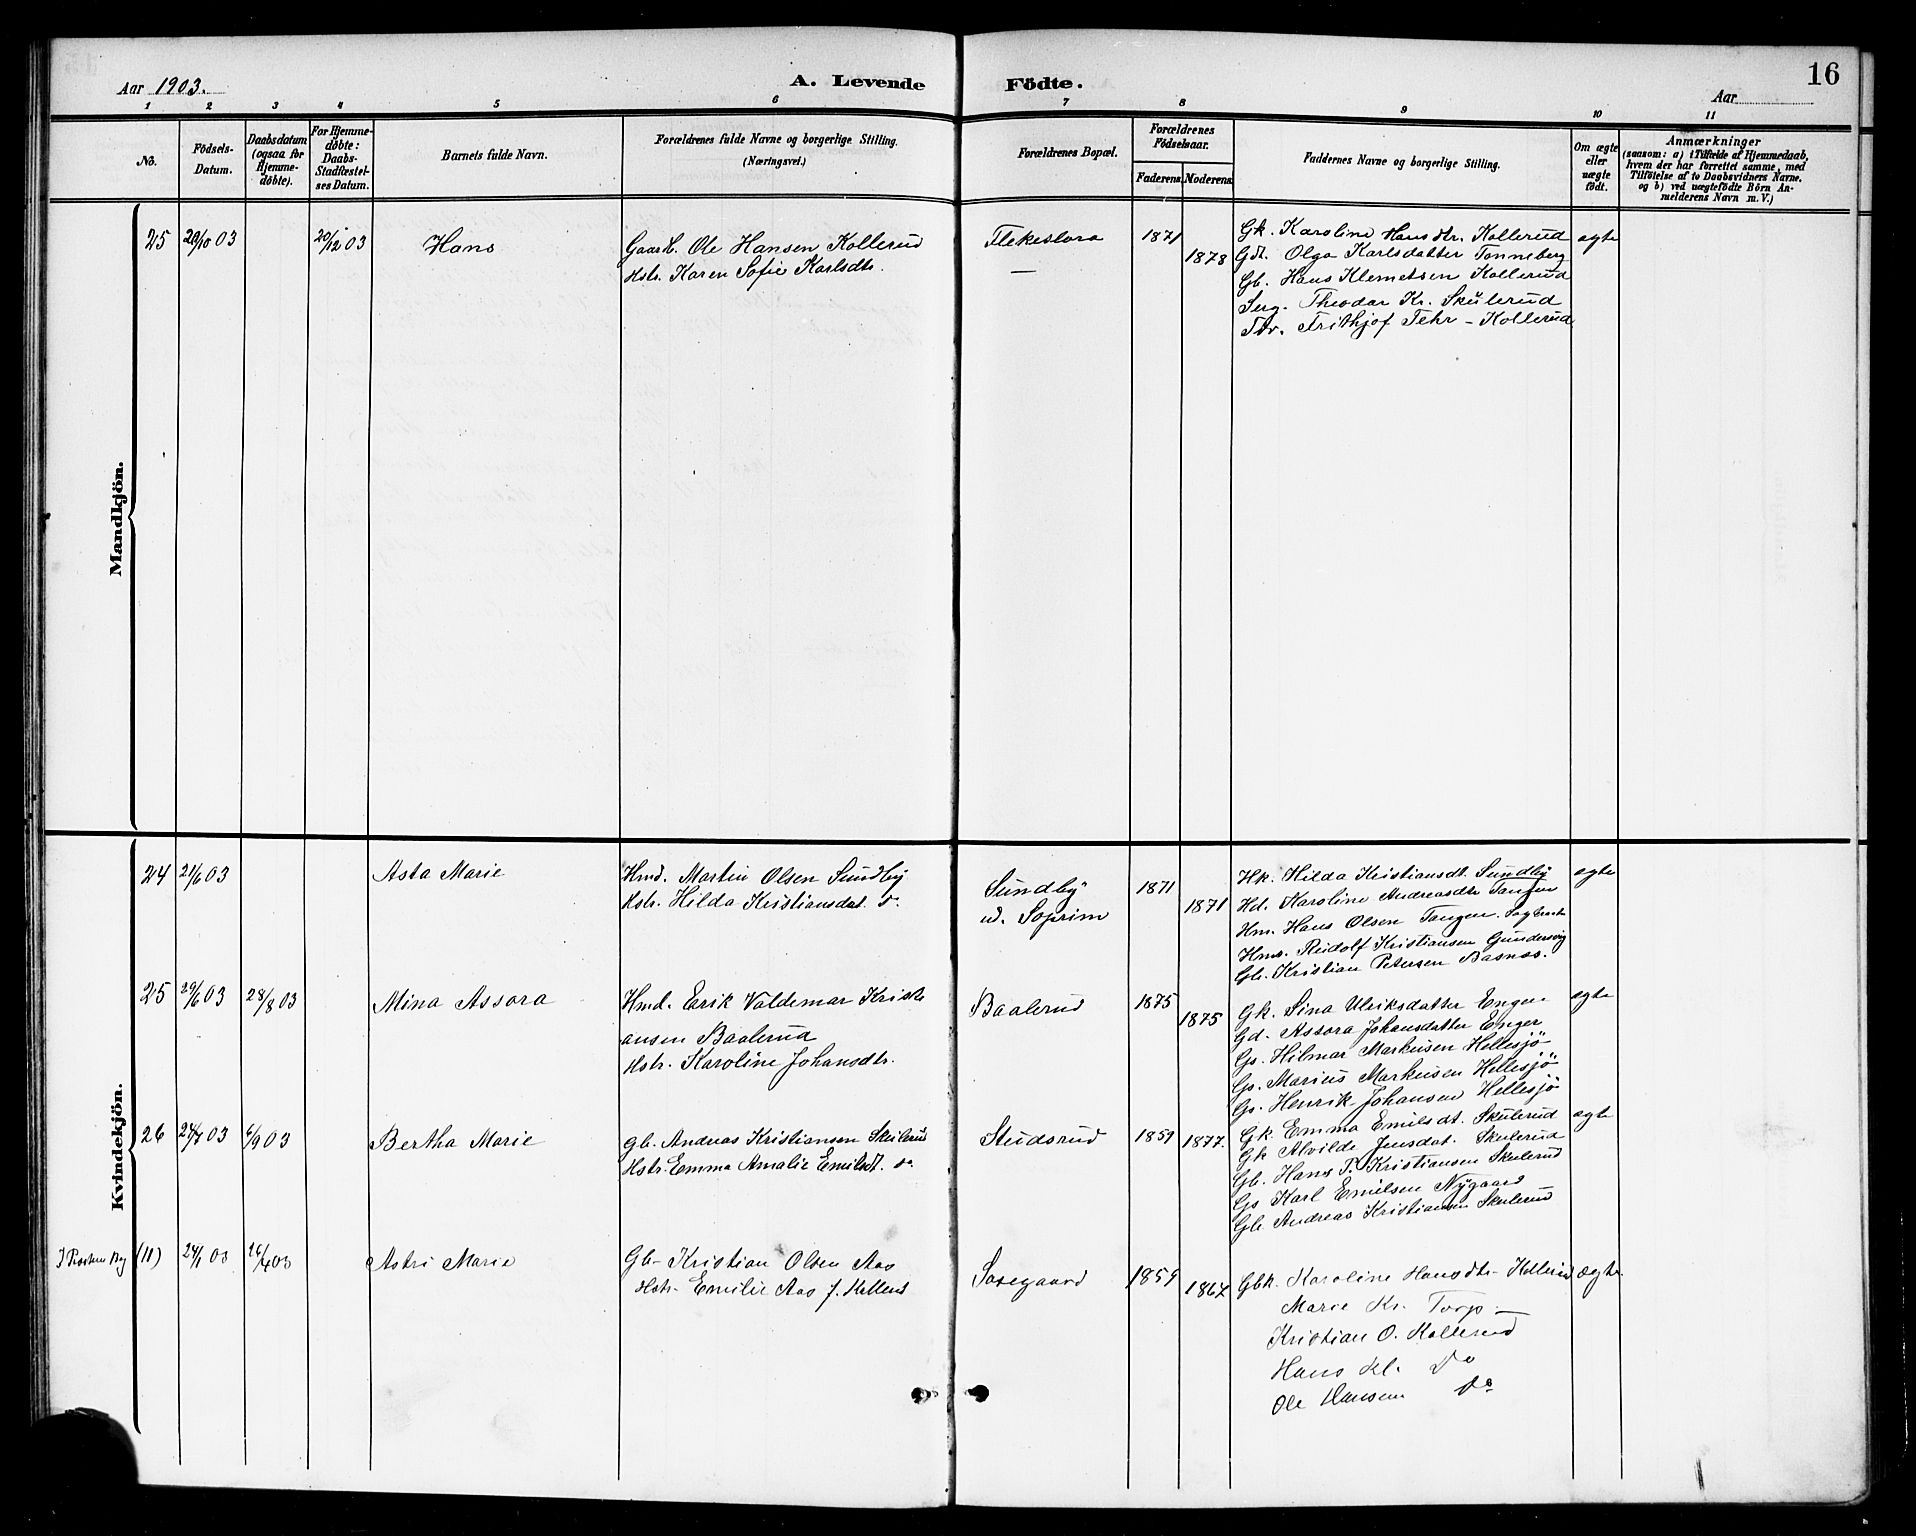 Aar 1903. A. Levende Födte. Aar 16
1 2 3 4 5 6 7 8 9 10 11
No. Födsels-Datum. Daabsdatum (ogsaa for Hjemme-döbte). For Hjemme-döbte: Daabs-Stadfæstelses Datum. Barnets fulde Navn. Forældrenes fulde Navne og borgerlige Stilling. (Næringsvei.) Forældrenes Bopæl. Forældrenes Födselsaar. Faderens. Moderens. Faddernes Navne og borgerlige Stilling. Om ægte eller uægte födt. Anmærkninger (saasom: a) i Tilfælde af Hjemmedaab, hvem der har forrettet samme, med Tilföielse af to Daabsvidners Navne. og b) ved uægtefödte Börn Anmelderens Navn m.V.)
Mandkjön.
25 20/10 03 20/12 03 Hans
Gaarb. Ole Hansen Kollerud
Hstr. Karen Sofie Karlsdtr.
1871 1878
Gk. Karoline Hansdtr. Kollerud
Gdt. Olga Karlsdatter Tonneberg
Gb. Hans Klemetsen Kollerud
Theodor Kr. Skulerud
Frithjof Fehr - Kollerud
ægte
Kvindekjön.
24 21/6 03 Asta Marie
Hmd. Martin Olsen Sundby
Hstr. Hilda Kristiansdat. do
Sundby
u. Soprim
1871 1871
Hk. Hilda Kristiansdt. Sundby
Hd. Karoline Andreasdtr Tangen
Hm. Hans Olsen Tangen.
Hms. Rudolf Kristiansen Gundersvig
Gb. Kristian Petersen Basnæs.
ægte
25 29/6 03 28/8 03 Mina Assora
Hmd. Erik Valdemar Kristi
ansen Baalerud
Hstr. Karoline Johansdtr.
Baalerud
1875 1875
Gk. Sina Ulriksdatter Enger
Gd. Assora Johansdatter Enger
Gs. Hilmar Markusen Hellesjö
Gs. Marius Markusen Hellesjö
Gs. Henrik Johansen Hellesjö
ægte
26 24/7 03 6/9 03 Bertha Marie
Gb. Andreas Kristiansen Skulerud
Hstr. Emma Amalie Emilsdt. do
Studsrud
1859 1877.
Gk. Emma Emilsdt. Skulerud
Gk Alvilde Jensdat. Skulerud
Gb. Hans P. Kristiansen Skulerud
Gs Karl Emilsen Nygaard
Gb. Andreas Kristiansen Skulerud
ægte
(11) 24/1 03 26/4 03 Astri Marie
Gb- Kristian Olsen Aas
Hstr- Emilie Aas f.
1859 1867
Gbk. Karoline Hansdtr- Kollerud
Marie Kr. Torp -
Kristian O. Kollerud
Hans Kl. Do
Ole Hansen Do
ægte.